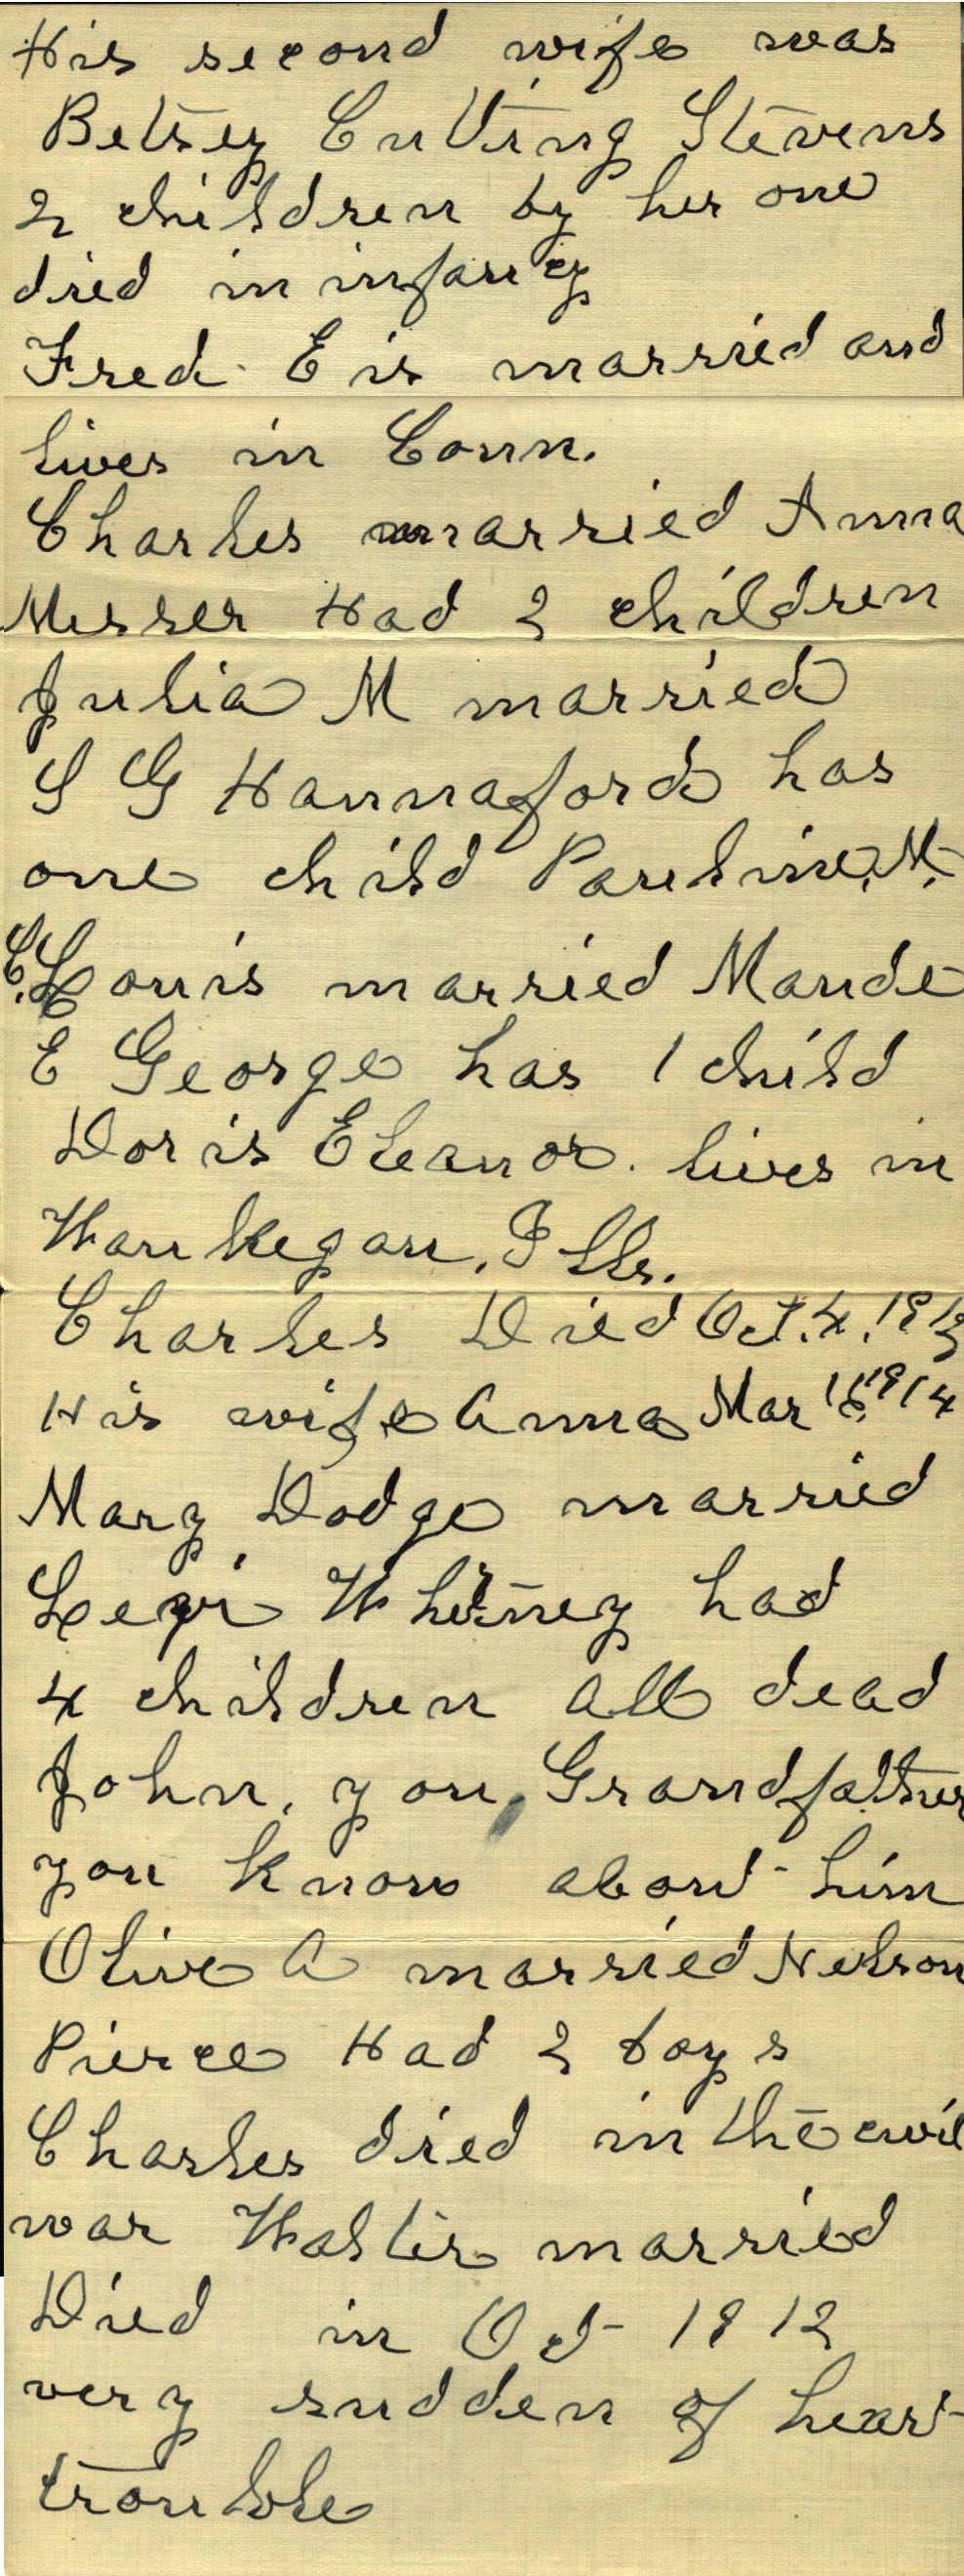 His second wife was
Betsey Cutting Stevens
2 children by her one
died in infancy
Fred. E is married and
lives in Conn.
Charles married Anna
Messer Had 2 children
Julia M married
S G Hannaford has
one child Pauline. M.
C. Louis married Maude
E George has 1 child
Doris Eleanor. lives in
Waukegan. Ills.
Charles Died Oct. 4. 1913
His wife Anna Mar 1914
Mary Dodge married
Levi Whitney had
4 children all dead
John, you, Grandfather
you know about him
Olive A married Nelson
Pierce Had 2 boys
Charles died in the civil
war Walter married
Died in Oct 1912
very sudden of heart
trouble